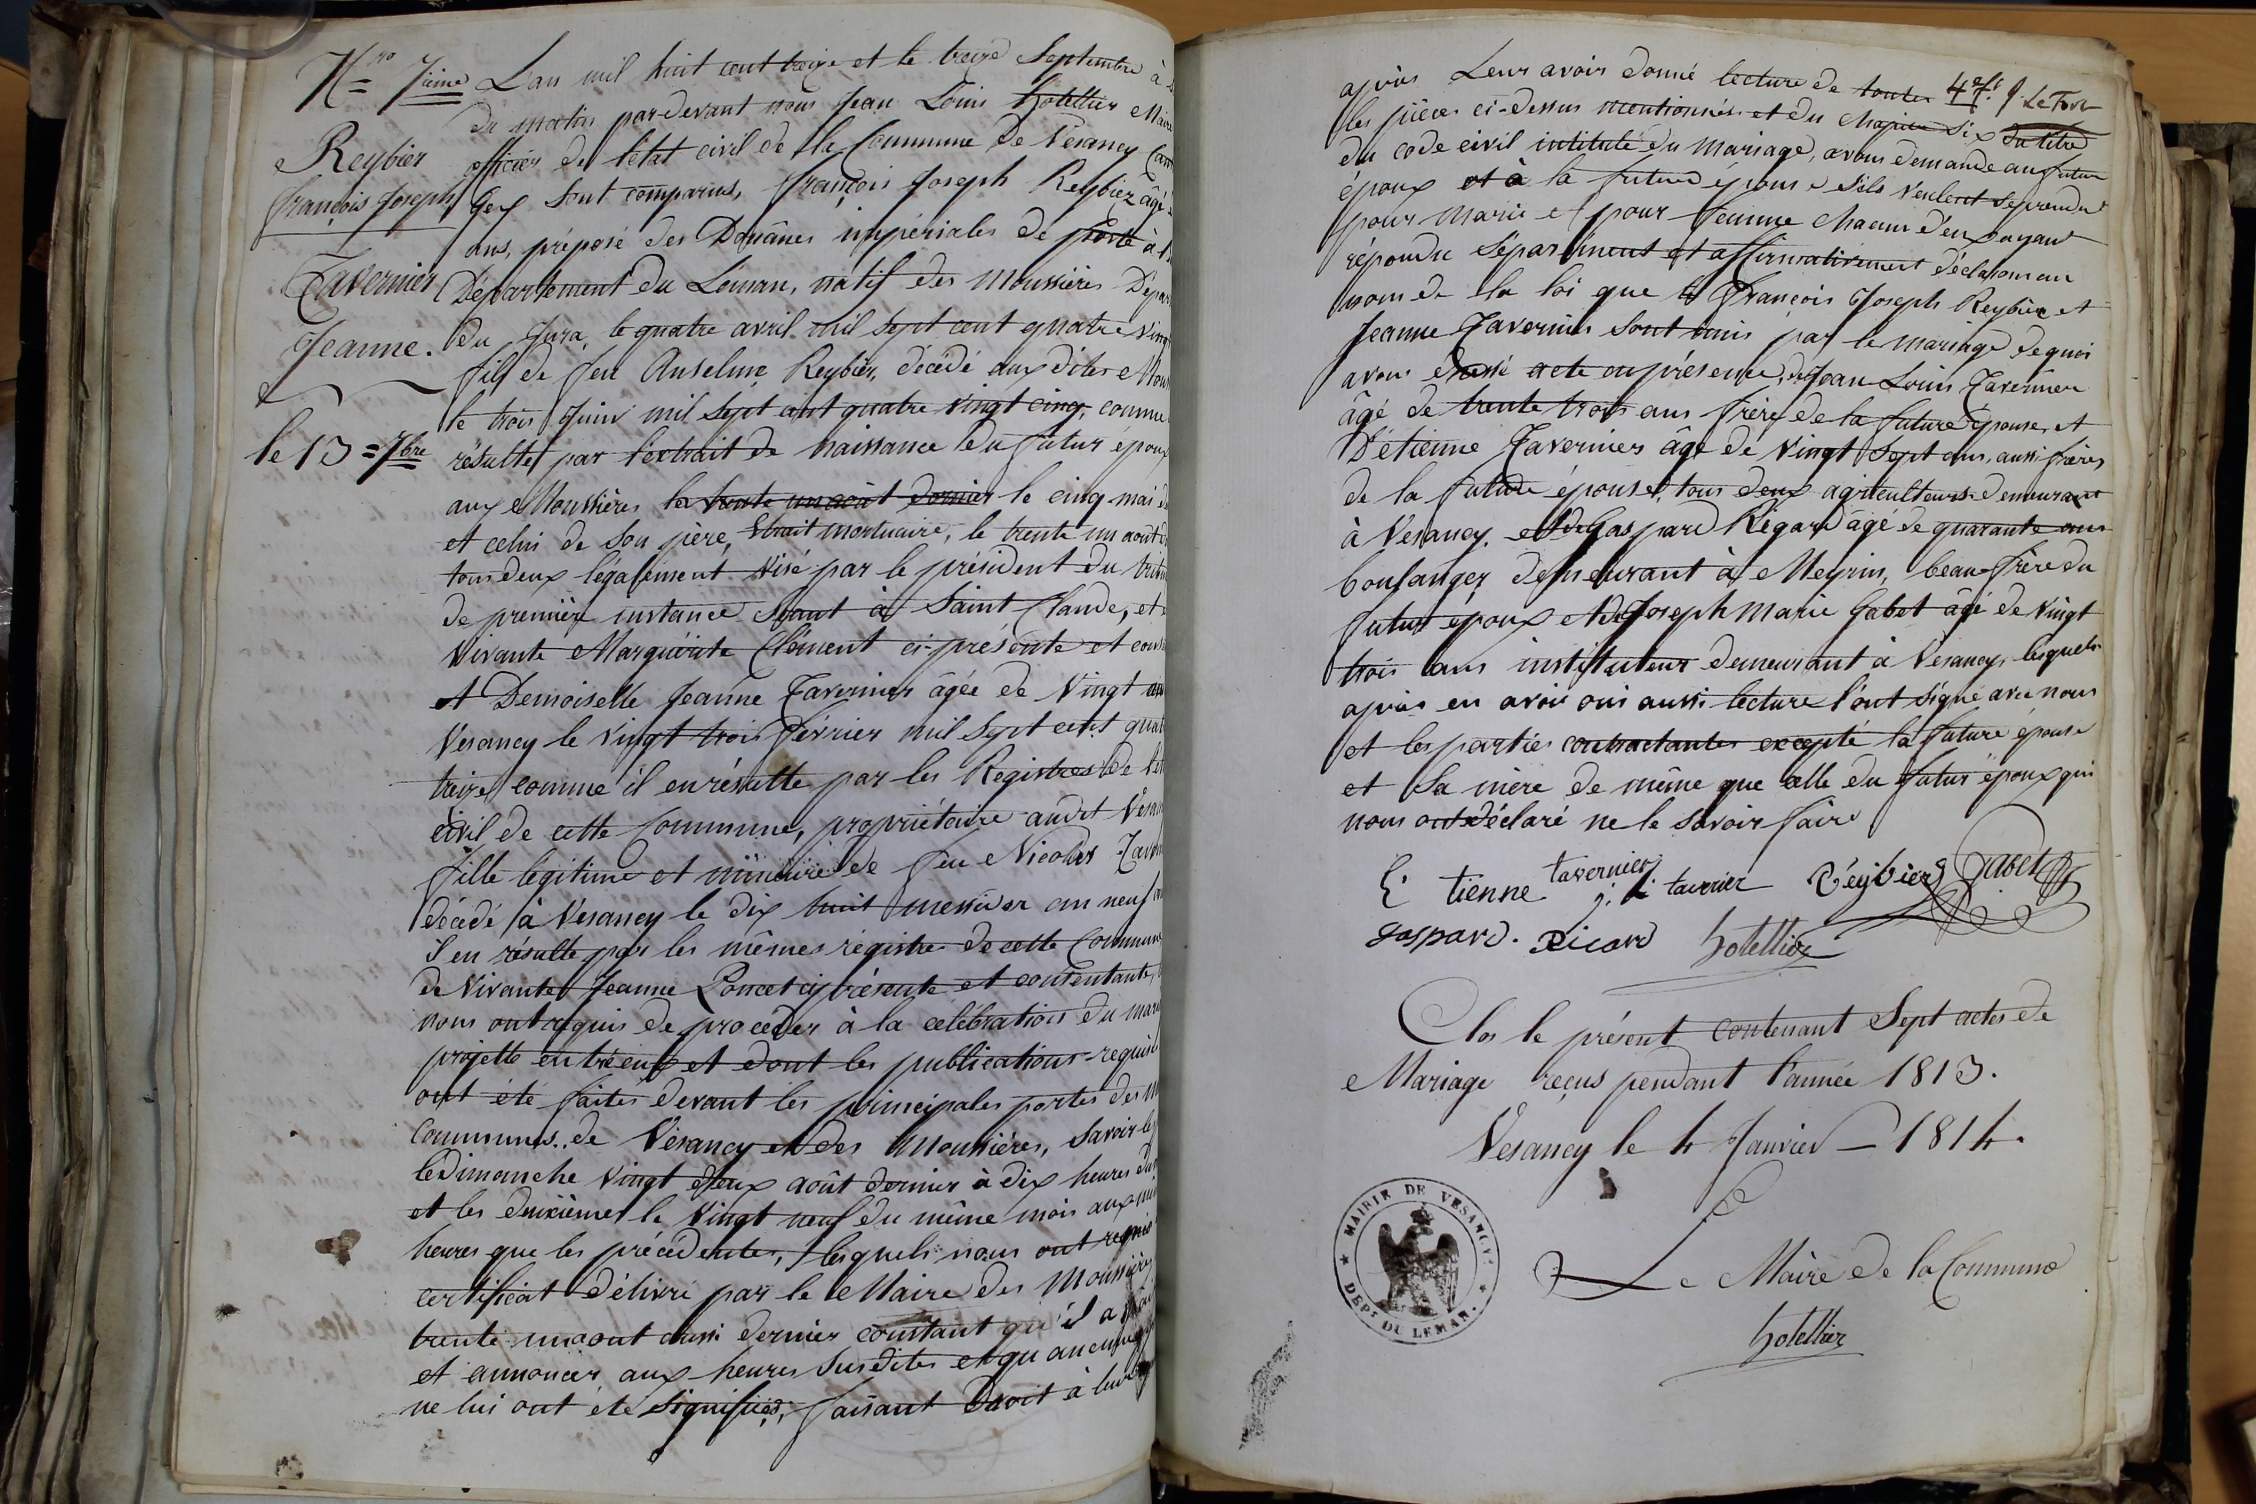 Nro 7ième
Reybier
françois Joseph
Tavernier
Jeanne.
le 13 = 7bre
L'an mil huit cent treize et le treize Septembre à
du matin par-devant nous Jean Louis hotellier Maire
officier de l'état civil de la Commune de Vesancy
Gex sont comparus, françois Joseph Reybier âgé
ans, préposé des Douânes impériales de poste à
Département du Léman, natif des Moussières Dépar
du Jura, le quatre avril mil sept cent quatre vingt
fils de feu Anselme Reybier, décédé aux dites Mous
le trois Juin mil sept cent quatre vingt cinq, comme
résulte par l'extrait de naissance du futur époux
aux Moussières le trente un août dernier le cinq mai
et celui de son père, Extrait mortuaire, le trente un août
tous deux légalement visé par le président du tribu
de première instance séant à Saint Claude, et
vivante Marguérite Clément ci-présente et cons
et Demoiselle Jeanne Tavernier âgée de vingt ans
Vesancy le vingt trois février mil sept cent quat
treize comme il en résulte par les Registres de l'é
civil de cette Commune, propriétaire audit Vesan
fille légitime et mineure de feu Nicolas Tavern
décédé à Vesancy le dix huit messidor an neuf
il en résulte par les mêmes régistres de cette Commune
de vivante Jeanne Poncet ci présente et consentante,
nous ont réquis de procéder à la célébration du mari
projetté entre eux et dont les publications requis
ont été faites devant les principales portes des
Communes de Vésancy et des Moussières, savoir le
le dimanche vingt deux août dernier à dix heures du
et les deuxièmes le vingt neuf du même mois aux
heures que les précédentes, lesquels nous ont requis
certificat délivré par le Maire des Moussières
trente un août aussi dernier constant qu'il a
et annoncer aux heures susdites et qu'aucune
ne lui ont été signifiées, faisant droit à leur
4 7. Le Fort
après Leur avoir donné lecture de toutes
les pièces ci-dessus mentionnées et du chapitre six du titre
du code civil intitulé du Mariage, avons demandé au futur
époux et à la future épouse s'ils veulent se prendre
pour Mari et pour femme chacun d'eux ayant
répondu séparément et affirmativement déclarons au
nom de la loi que françois Joseph Reybier et
Jeanne Tavernier sont unis par le mariage de quoi
avons dressé acte en présence, de Jean Louis Tavernier
âgé de trente trois ans frère de la future épouse, et
D'étienne Tavernier âgé de vingt sept ans, aussi frères
de la future épouse, tous deux agriculteurs demeurant
à Vesancy. et de Gaspard Régard âgé de quarante ans
boulanger demeurant à Meyrin, beau-frère du
futur époux et de Joseph Marie Gabet âgé de vingt
trois ans instituteur demeurant à Vesancy, lesquels
après en avoir oui aussi lecture l'ont signé avec nous
et les parties contractantes excepté la future épouse
et sa mère de même que celle du futur époux qui
nous ont déclaré ne le savoir faire
E tienne tavernier j. l tavernier Réybier Gabet
gaspard. Ricard hotellier
Clos le présent contenant Sept actes de
Mariage reçus pendant l'année 1813.
Vesancy le 4 Janvier – 1814.
MAIRIE DE VESANCY
DEPt DU LEMAN.
Le Maire de la Commune
hotellier